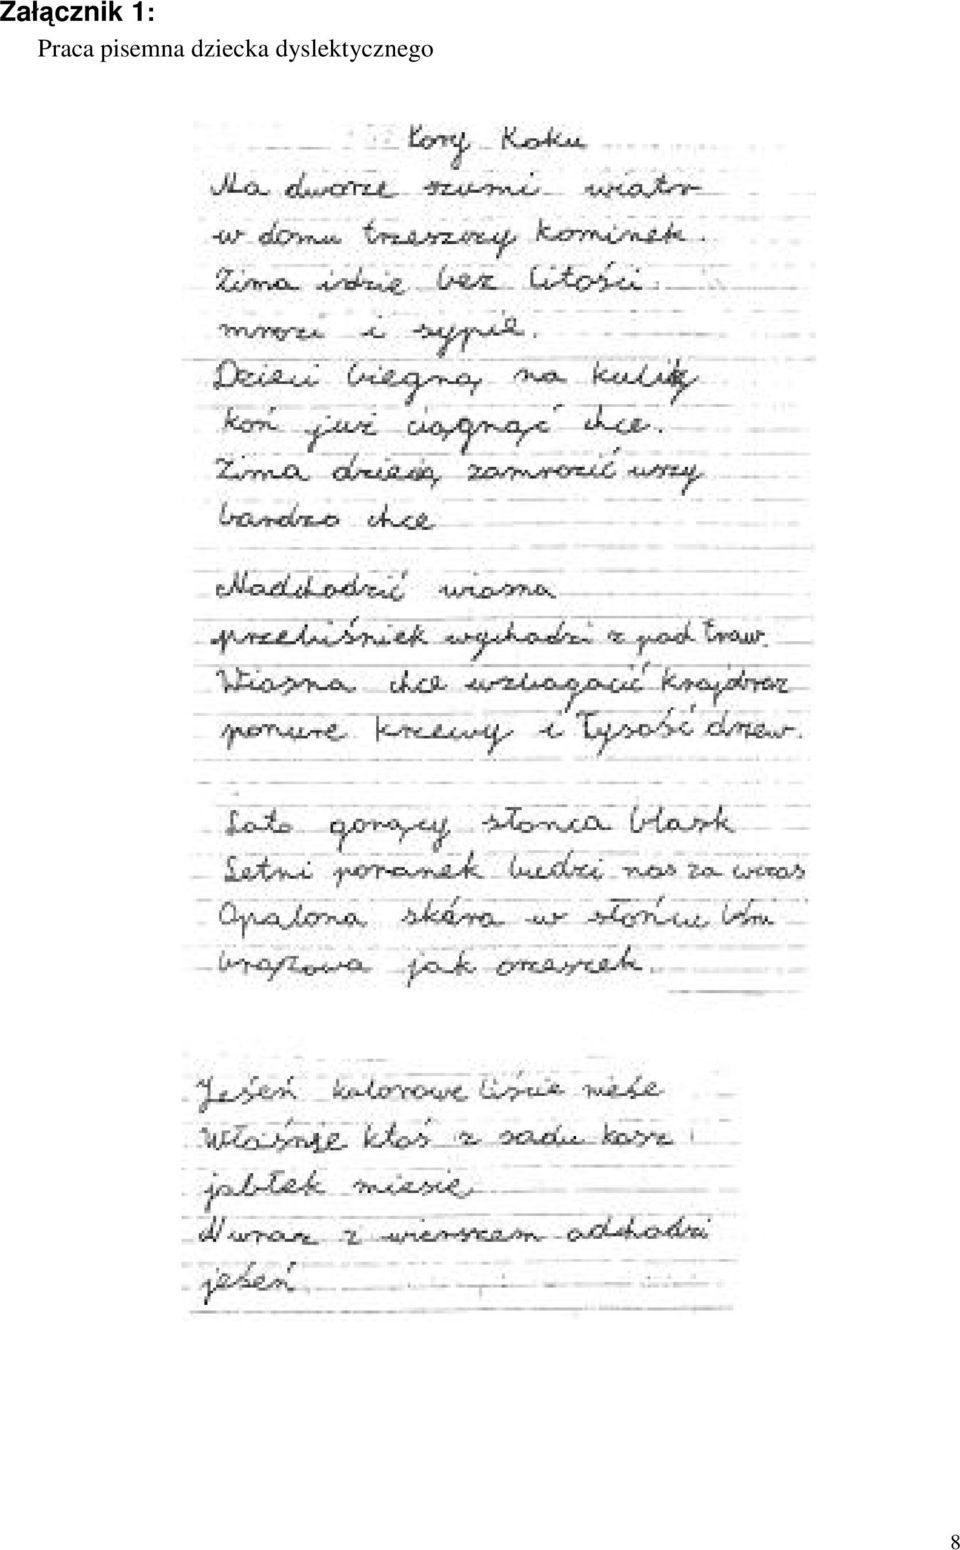 Załącznik 1:
Praca pisemna dziecka dyslektycznego
Łory Roku
Na dworze szumi wiatr
w domu trzeszczy kominek.
Zima idzie bez litości.
mrozi i sypie.
Dzieci biegną na kulik
koń już ciągnąć chce.
Zima dziecią zamrozić uszy
bardzo chce
Nadchodzić wiasna
przebiśniek wychadzi z pod traw.
Wiasna chce wzbagacić krajobraz
ponure krzewy i łysość drzew.
Lato gorący słonca blask
Letni poranek budzi nas za wczas
Opalona skóra w słońcu lśni
brązowa jak orzeszek.
Jeśeń kalorowe liście nieśe
Właśnię ktaś z sadu kasz
jabłek miesie
wraz z wierszem adchadzi
jeśeń
8